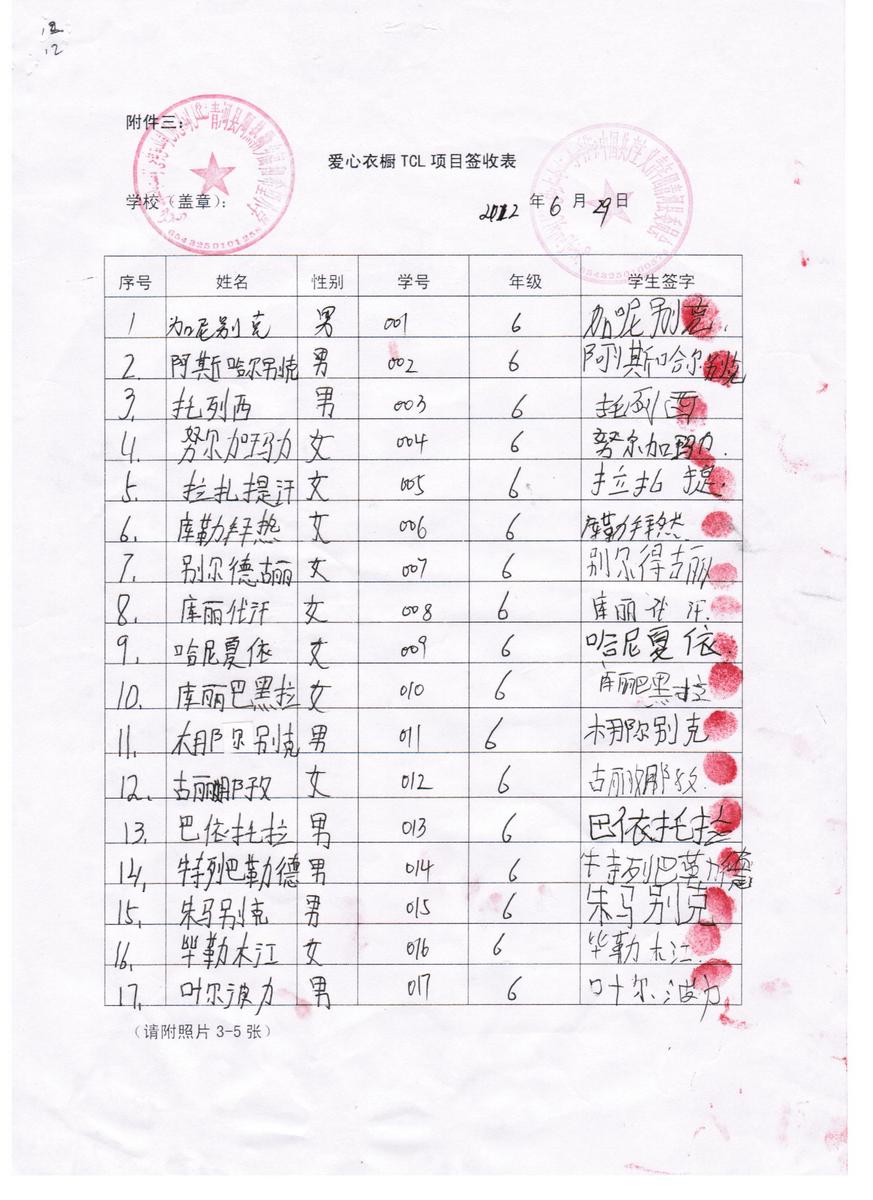 12
附件三：
爱心衣橱 TCL 项目签收表
学校（盖章）： 2012 年 6 月 29 日
6543250101258
序号 姓名 性别 学号 年级 学生签字
1 加尼别克 男 001 6 加呢别克.
2. 阿斯哈尔别克 男 002 6 阿斯哈尔别克
3. 托列西 男 003 6 托列西
4. 努尔加玛力 女 004 6 努尔加玛力.
5. 拉扎提汗 女 005 6 拉扎提.
6. 库勒拜热 女 006 6 库勒拜然
7. 别尔德古丽 女 007 6 别尔得古丽
8. 库丽代汗 女 008 6 库丽代汗.
9. 哈尼夏依 女 009 6 哈尼夏依
10. 库丽巴黑拉 女 010 6 库丽巴黑拉
11. 木那尔别克 男 011 6 木那尔别克
12. 古丽娜孜 女 012 6 古丽娜孜.
13. 巴依托拉 男 013 6 巴依托拉
14. 特列巴勒德 男 014 6 特列巴勒德
15. 朱马别克 男 015 6 朱马别克
16. 毕勒木江 女 016 6 毕勒木江.
17. 叶尔波力 男 017 6 叶尔波力
（请附照片 3-5 张）